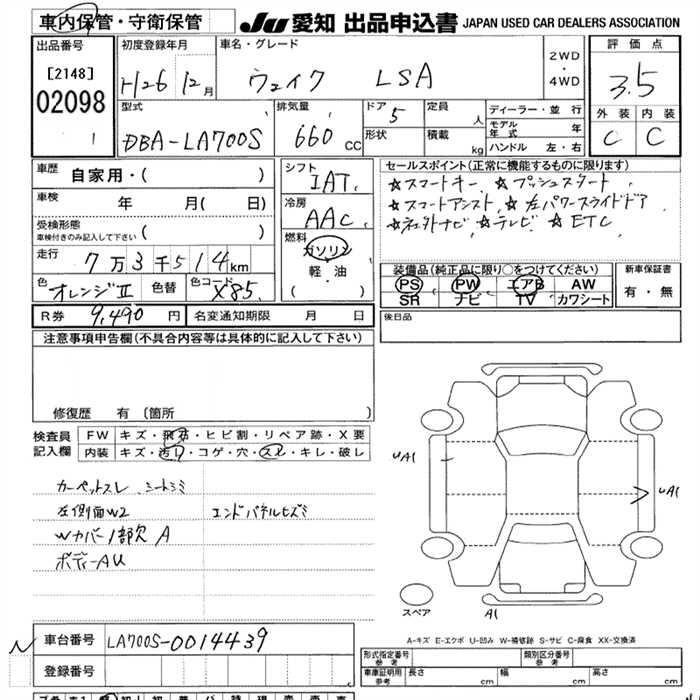 車内保管・守衛保管 JU 愛知 出品申込書 JAPAN USED CAR DEALERS ASSOCIATION
出品番号 初度登録年月 車名・グレード 2WD ・ 4WD 評価点
[2148] H26 12月 ウェイク LSA 3.5
02098 型式 排気量 ドア 5 定員 人 ディーラー・並行 外装 内装
1 DBA-LA700S 660 CC 形状 積載 kg モデル年式 年 C C
ハンドル 左・右
車歴 自家用・( ) シフト IAT セールスポイント(正常に機能するものに限ります)
車検 年 月( 日) 冷房 AAC ☆スマートキー ☆プッシュスタート
受検形態 ( ) ☆スマートアシスト ☆左パワースライドドア
車検付きのみ記入して下さい 燃料 ☆ナビ ☆テレビ ☆ETC
走行 7万3千514km ガソリン
色 オレンジII 色替 色コード X85 軽・油 ( ) 装備品(純正品に限り○をつけてください) 新車保証書
PS PW エアB AW 有・無
SR ナビ TV カワシート
R券 9,490円 名変通知期限 月 日 後日品
注意事項申告欄(不具合内容等は具体的に記入して下さい)
修復歴 有 〔箇所 〕
検査員 FW キズ・飛石・ヒビ割・リペア跡・X要
記入欄 内装 キズ・汚レ・コゲ・穴・スレ・キレ・破レ
カーペットスレ シートシミ
左側面W2 エンドパネルヒズミ
Wカバー1部欠A
ボディーAU
UA1
UA1
スペア A1
A-キズ E-エクボ U-凹み W-補修跡 S-サビ C-腐食 XX-交換済
N 車台番号 LA700S-0014439
登録番号
形式指定番号 参考 類別区分番号 参考
車庫証明用 参考 長さ 幅 高さ